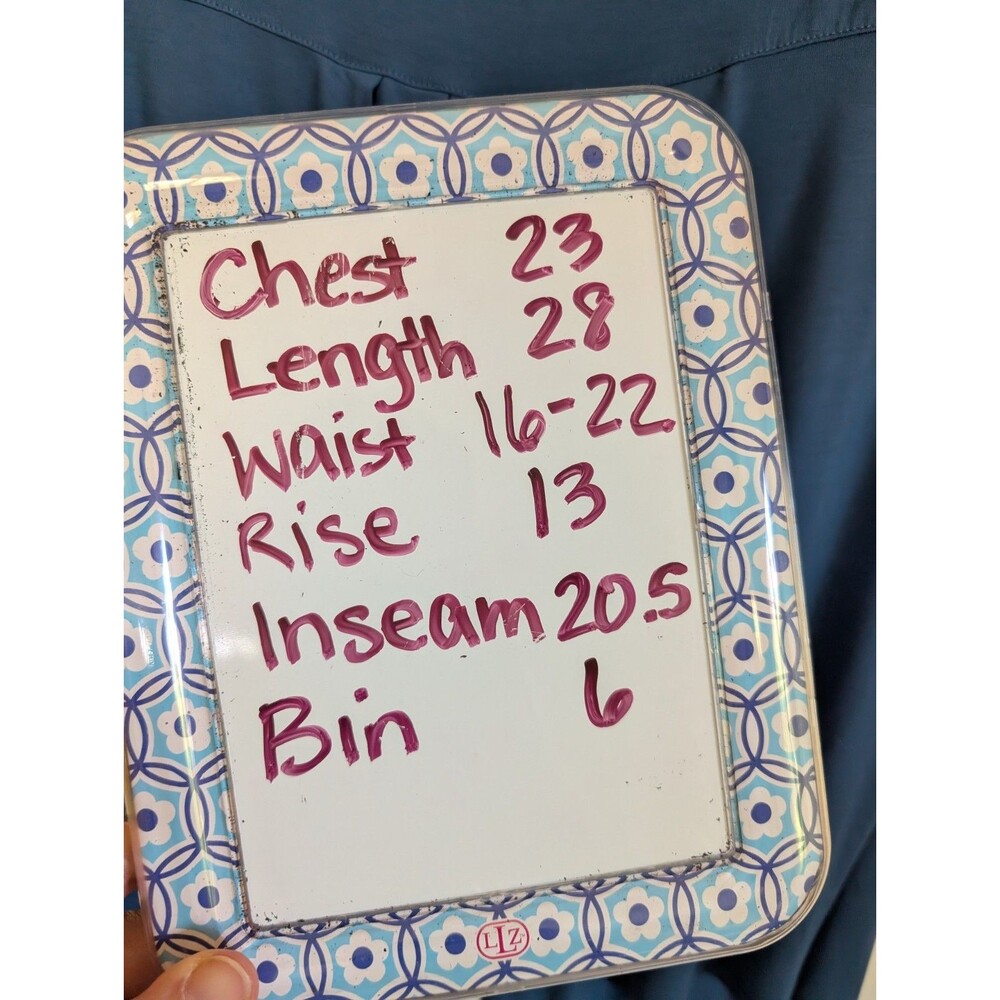 Chest 23
Length 28
Waist 16-22
Rise 13
Inseam 20.5
Bin 6
LLZ